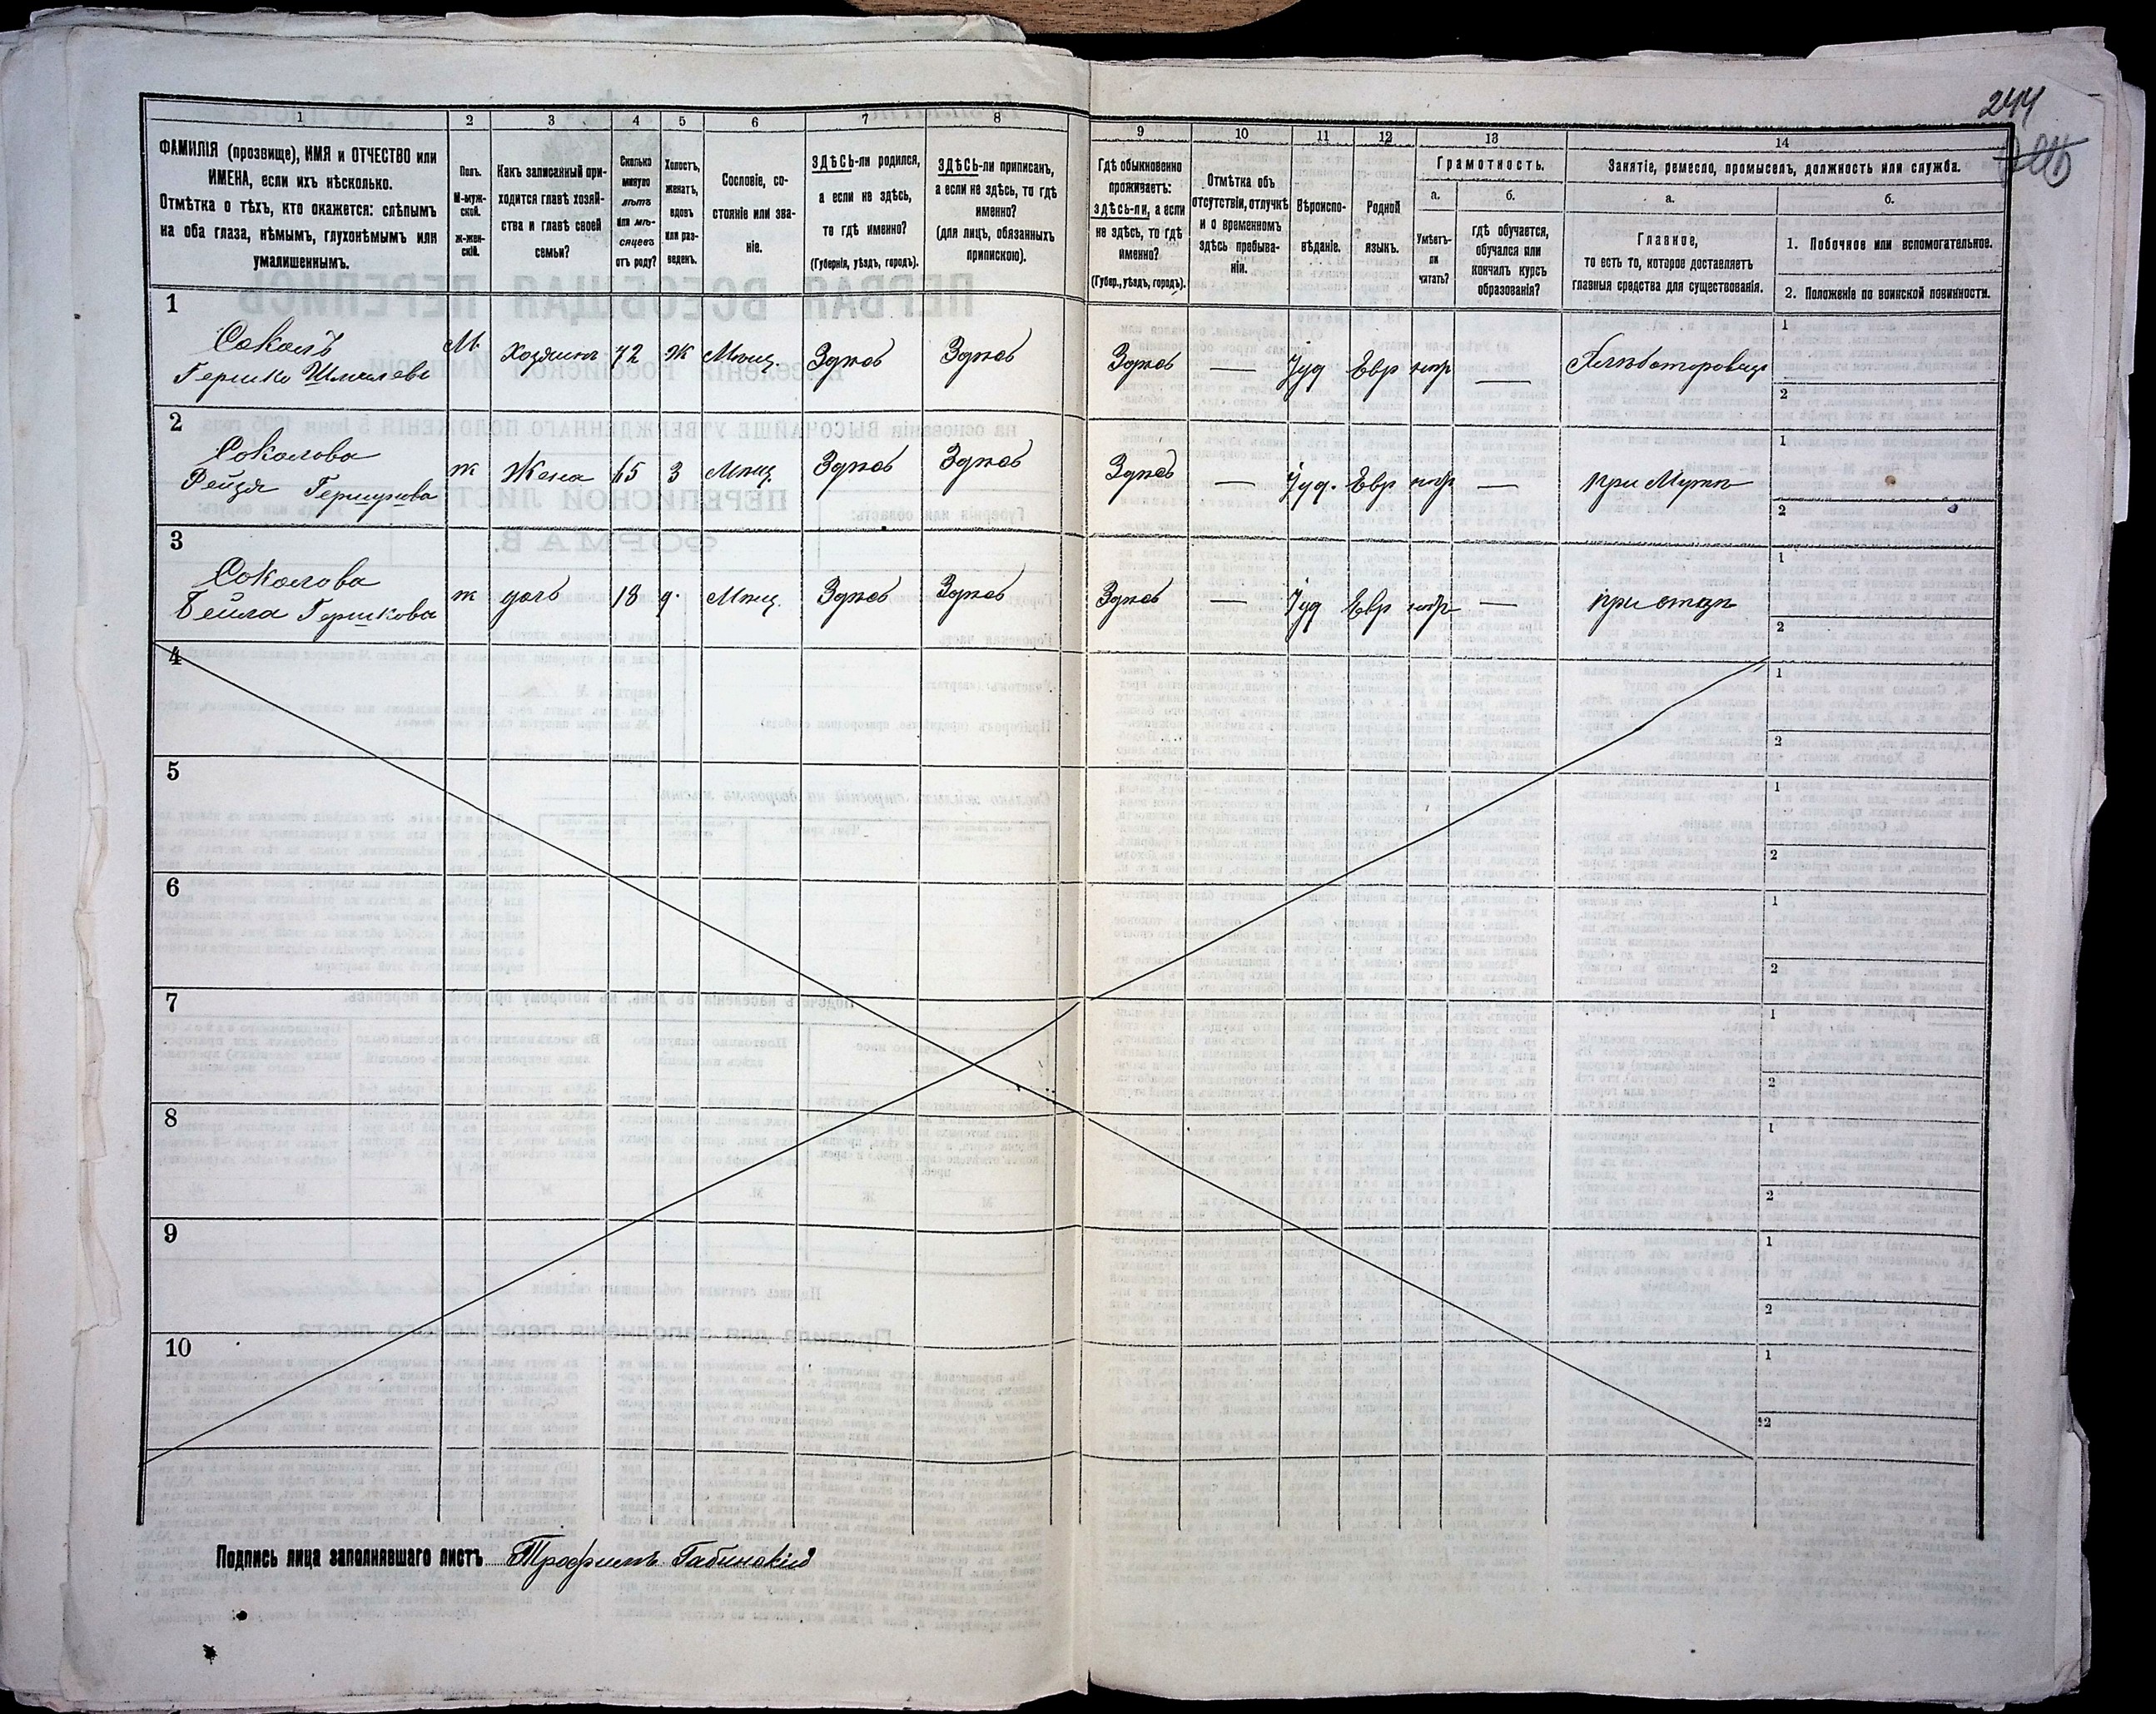 244
1
2
3
4
5
6
7
8
9
10
11
12
13
14
ФАМИЛІЯ (прозвище), ИМЯ и ОТЧЕСТВО или
ИМЕНА, если ихъ нѣсколько.
Отмѣтка о тѣхъ, кто окажется: слѣпымъ
на оба глаза, нѣмымъ, глухонѣмымъ или
умалишеннымъ.
Полъ.
М-муж-
ской.
ж-жен-
скій.
Какъ записанный при-
ходится главѣ хозяй-
ства и главѣ своей
семьи?
Сколько
минуло
лѣтъ
или мѣ-
сяцевъ
отъ роду?
Холостъ,
женатъ,
вдовъ
или раз-
веденъ.
Сословіе, со-
стояніе или зва-
ніе.
ЗДѢСЬ-ли родился,
а если не здѣсь,
то гдѣ именно?
(Губернія, уѣздъ, городъ).
ЗДѢСЬ-ли приписанъ,
а если не здѣсь, то гдѣ
именно?
(для лицъ, обязанныхъ
припискою).
Гдѣ обыкновенно
проживаетъ:
здѣсь-ли, а если
не здѣсь, то гдѣ
именно?
(Губер., уѣздъ, городъ).
Отмѣтка объ
отсутствіи, отлучкѣ
и о временномъ
здѣсь пребыва-
ніи.
Вѣроиспо-
вѣданіе.
Родной
языкъ.
Грамотность.
а.
Умѣетъ-
ли
читать?
б.
гдѣ обучается,
обучался или
кончилъ курсъ
образованія?
Занятіе, ремесло, промыселъ, должность или служба.
а.
Главное,
то есть то, которое доставляетъ
главныя средства для существованія.
б.
1. Побочное или вспомогательное.
2. Положеніе по воинской повинности.
1
Соколъ
Гершко Шмулевъ
М.
Хозяинъ
72
Ж
Мѣщ.
Здѣсь
Здѣсь
Здѣсь
—
Іуд
Евр
—
1
2
2
Соколова
Рейзя
ж
Жена
65
З
Мѣщ.
Здѣсь
Здѣсь
Здѣсь
—
Іуд.
Евр
—
при Мужѣ
1
2
3
Соколова
Бейла Гершкова
ж
дочь
18
д.
Мѣщ.
Здѣсь
Здѣсь
Здѣсь
—
Іуд
Евр
—
при отцѣ
1
2
4
1
2
5
1
2
6
1
2
7
1
2
8
1
2
9
1
2
10
1
2
Подпись лица заполнявшаго листъ Трофимъ Габинскій